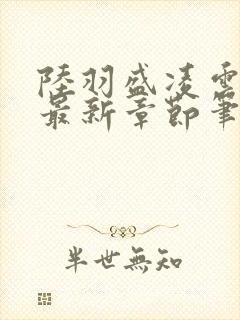 陸羽盛凌雲
最新章節筆
半世無知